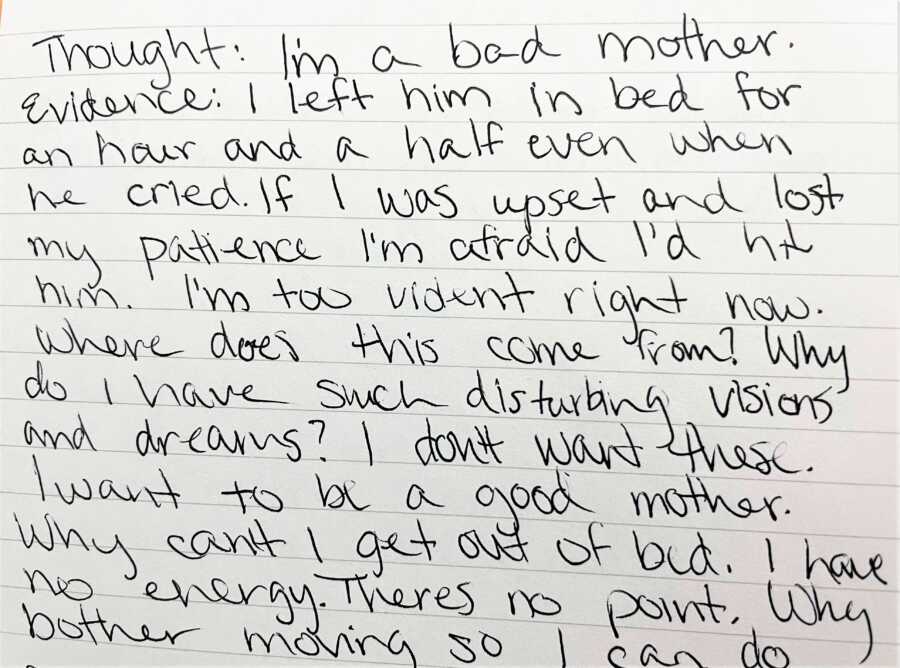 Thought: I'm a bad mother.
Evidence: I left him in bed for
an hour and a half even when
he cried. If I was upset and lost
my patience I'm afraid I'd hit
him. I'm too violent right now.
Where does this come from? Why
do I have such disturbing visions
and dreams? I don't want these.
I want to be a good mother.
Why can't I get out of bed. I have
no energy. Theres no point. Why
bother moving so I can do